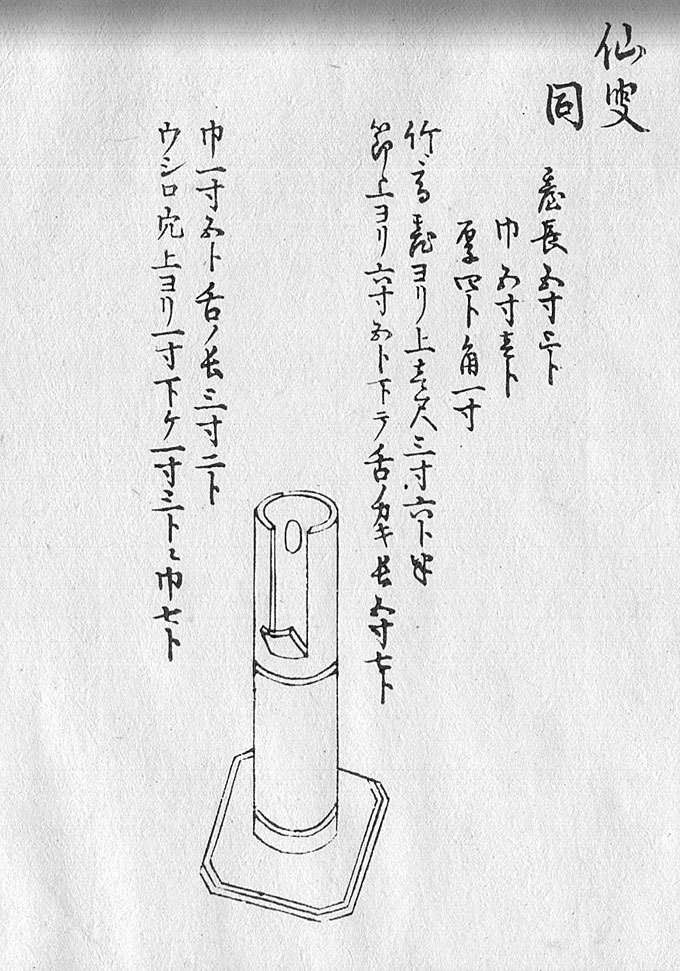 仙叟
同
臺長五寸三ト
巾五寸壱ト
厚四ト角一寸
竹高臺ヨリ上壱尺三寸六ト半
節上ヨリ六寸五ト下テ舌ノカキ長五寸七ト
巾一寸五ト舌ノ長三寸二ト
ウシロ穴上ヨリ一寸下ケ一寸三トニ巾七ト